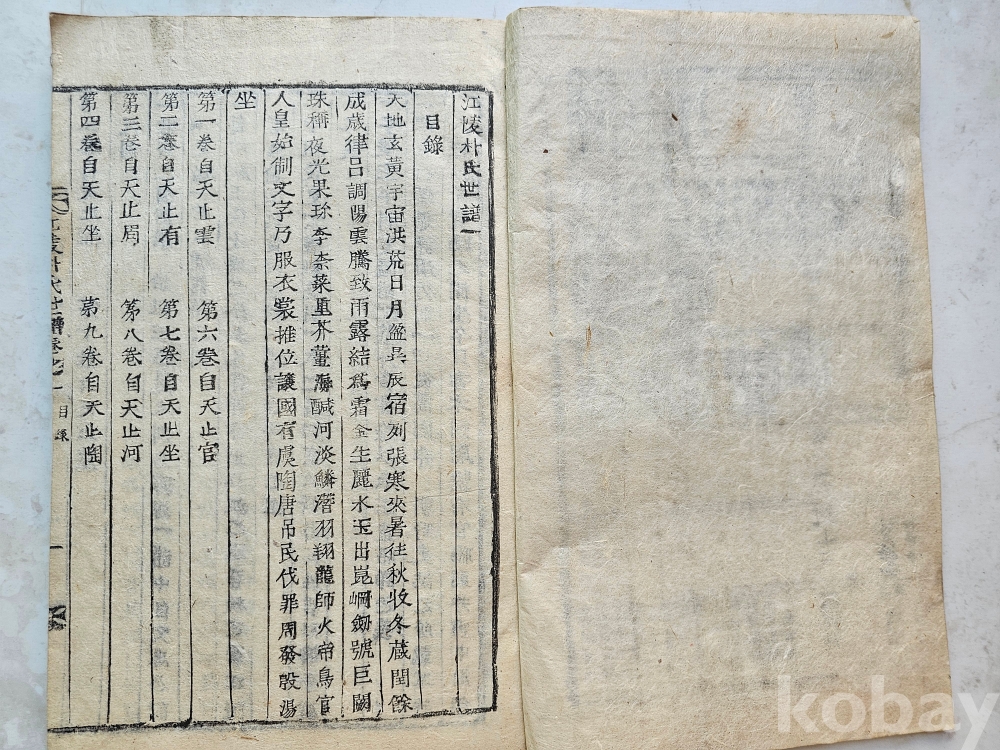 江陵朴氏世譜一
目錄
天地玄黃宇宙洪荒日月盈昃辰宿列張寒來暑往秋收冬藏閏餘
成歲律呂調陽雲騰致雨露結爲霜金生麗水玉出崑崗劒號巨闕
珠稱夜光果珍李柰菜重芥薑海醎河淡鱗潛羽翔龍師火帝鳥官
人皇始制文字乃服衣裳推位讓國有虞陶唐吊民伐罪周發殷湯
坐
第一卷自天止雲 第六卷自天止官
第二卷自天止有 第七卷自天止坐
第三卷自天止眉 第八卷自天止河
第四卷自天止坐 第九卷自天止陶
江陵朴氏世譜卷之一 目錄 一
kobay